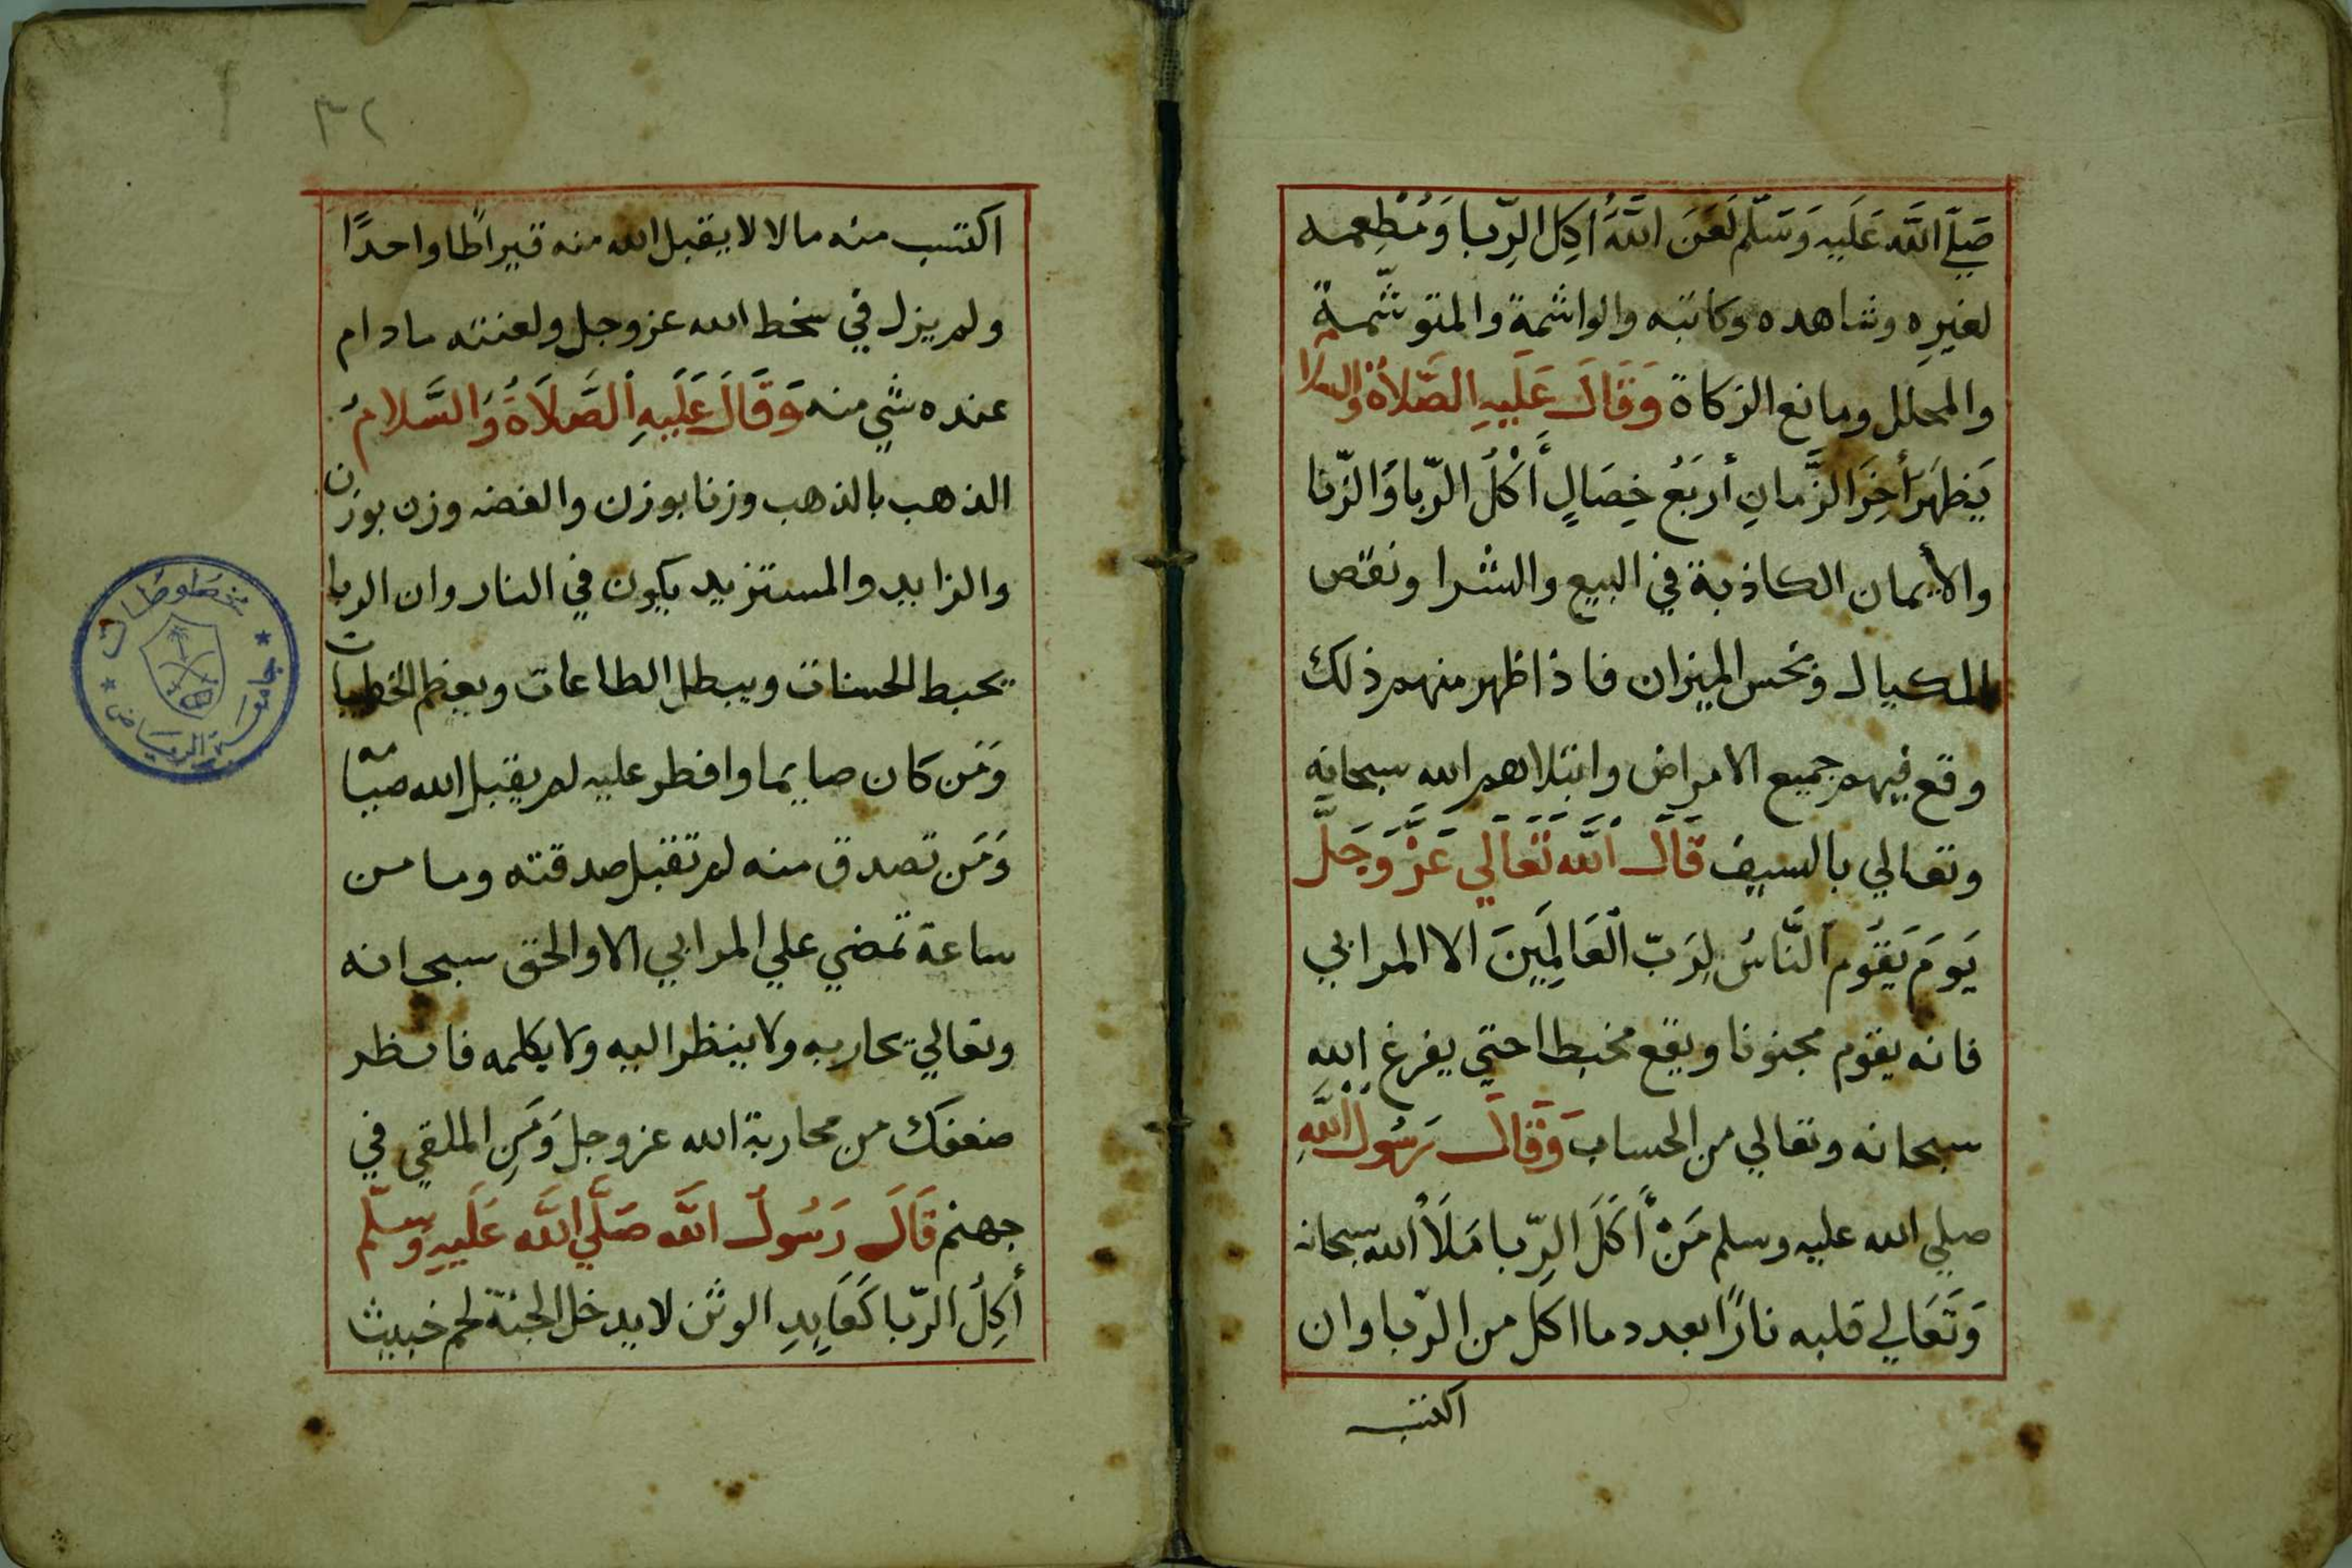 صَلَّي اللَّه عَلَيهِ وَسَلّم لَعَنَ اللَّهُ أٰكِل الرِّبا وَمُطعِمه
لغيرِه وشاهده وكاتبه والواشمة والمتوشّمةً
والمحلل ومانع الزكاة وَقَالَ عَلَيهِ الصَّلاةُ والسلا
يَظهَر أَخِرَ الزَّمانِ أربَعُ خِصَالٍ أَكلُ الرّبا وَالزّنا
والأيمان الكاذبة في البيع والشرا ونقص
المكيال وبخس الميزان فاذا ظهر منهم ذلك
وقع فيهم جميع الامراض وابتلاهم الله سبحانه
وتعالي بالسيف قَالَ اَللَّه تَعَالي عَزَّ وَجَلَّ
يَومَ يَقُوم اَلنَّاسُ لِرَبّ اَلعَالَمِينَ الا المرابي
فانه يقوم مجنونا ويقع مخبطا حتي يفرغ الله
سبحانه وتعالي من الحساب وَقَالَ رَسُول اللَّهِ
صلي الله عليه وسلم مَنْ أَكَلَ الرِّبا مَلَأَ الله سبحانه
وَتَعَالي قلبه نارًا بعدد ما اكل من الرّبا وان
اكتسب
٣٢
اكتسب منه مالا لا يقبل الله منه قيراطًا واحدًا
ولم يزل في سخط الله عز وجل ولعنته ما دام
عنده شي منه وَقَالَ عَلَيهِ اَلصَّلَاةُ وَالسَّلامُ
الذهب بالذهب وزنا بوزن والفضه وزن بوزن
والزايد والمستزيد يكون في النار وان الربا
يحبط الحسنات ويبطل الطاعات ويعظم الخطيات
وَمَن كان صايما وافطر عليه لم يقبل الله صيامه
وَمَن تصدق منه لم تقبل صدقته وما من
ساعة تمضي علي المرابي الا والحق سبحانه
وتعالي يحاربه ولا ينظر اليه ولا يكلمه فانظر
ضعفك من محاربة الله عز وجل وَمَنِ الملقي في
جهنم قَالَ رَسُولُ اللَّه صَلَّي اللَّه عَلَيهِ وَسلّم
أَكِلُ الرّبا كَعَابِدِ الوثن لا يدخل الجنة لحم خبيث
مخطوطات
جامعة الرياض